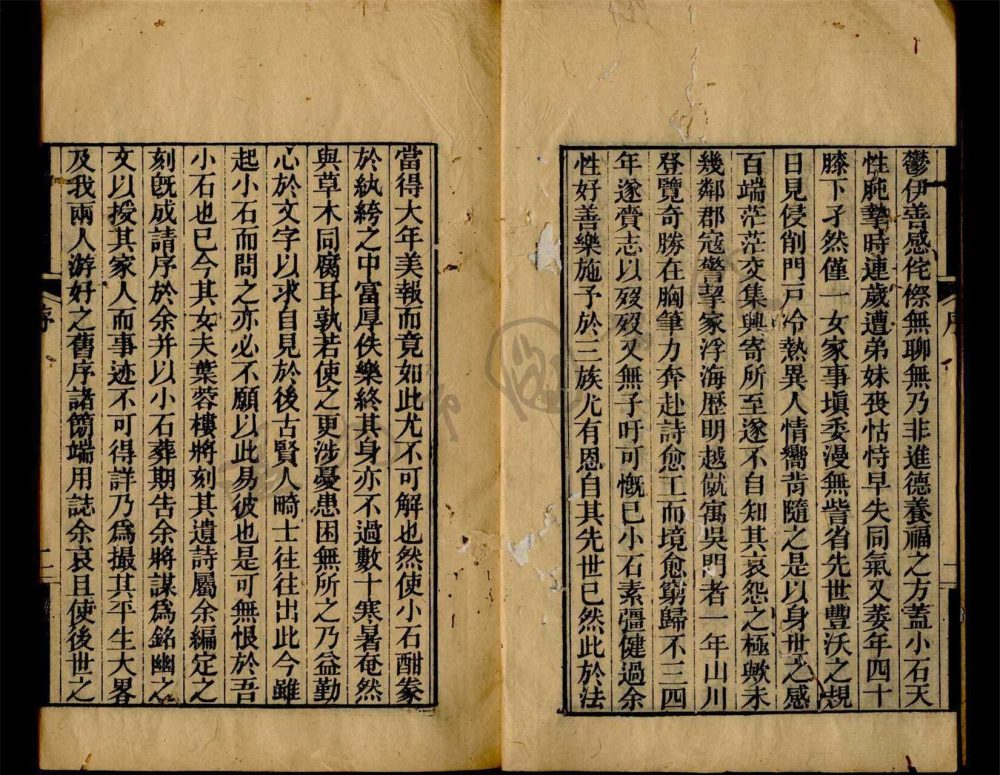 鬱伊善感侘傺無聊無乃非進德養福之方蓋小石天
性肫摯時連歲遭弟妹喪怙恃早失同氣又萎年四十
膝下孑然僅一女家事塡委漫無訾省先世豐沃之規
日見侵削門戸冷熱異人情嚮背隨之是以身世之感
百端茫茫交集興寄所至遂不自知其哀怨之極歟未
幾鄰郡寇警挈家浮海歷明越僦寓吳門者一年山川
登覽奇勝在胸筆力奔赴詩愈工而境愈窮歸不三四
年遂賫志以歿歿又無子吁可慨已小石素彊健過余
性好善樂施予於三族尤有恩自其先世已然此於法
序
二
當得大年美報而竟如此尤不可解也然使小石酣豢
於紈絝之中富厚佚樂終其身亦不過數十寒暑奄然
與草木同腐耳孰若使之更涉憂患困無所之乃益勤
心於文字以求自見於後古賢人畸士往往出此今雖
起小石而問之亦必不願以此易彼也是可無恨於吾
小石也已今其女夫葉蓉樓將刻其遺詩屬余編定之
刻旣成請序於余并以小石葬期吿余將謀爲銘幽之
文以授其家人而事迹不可得詳乃爲撮其平生大畧
及我兩人游好之舊序諸簡端用誌余哀且使後世之
序
二